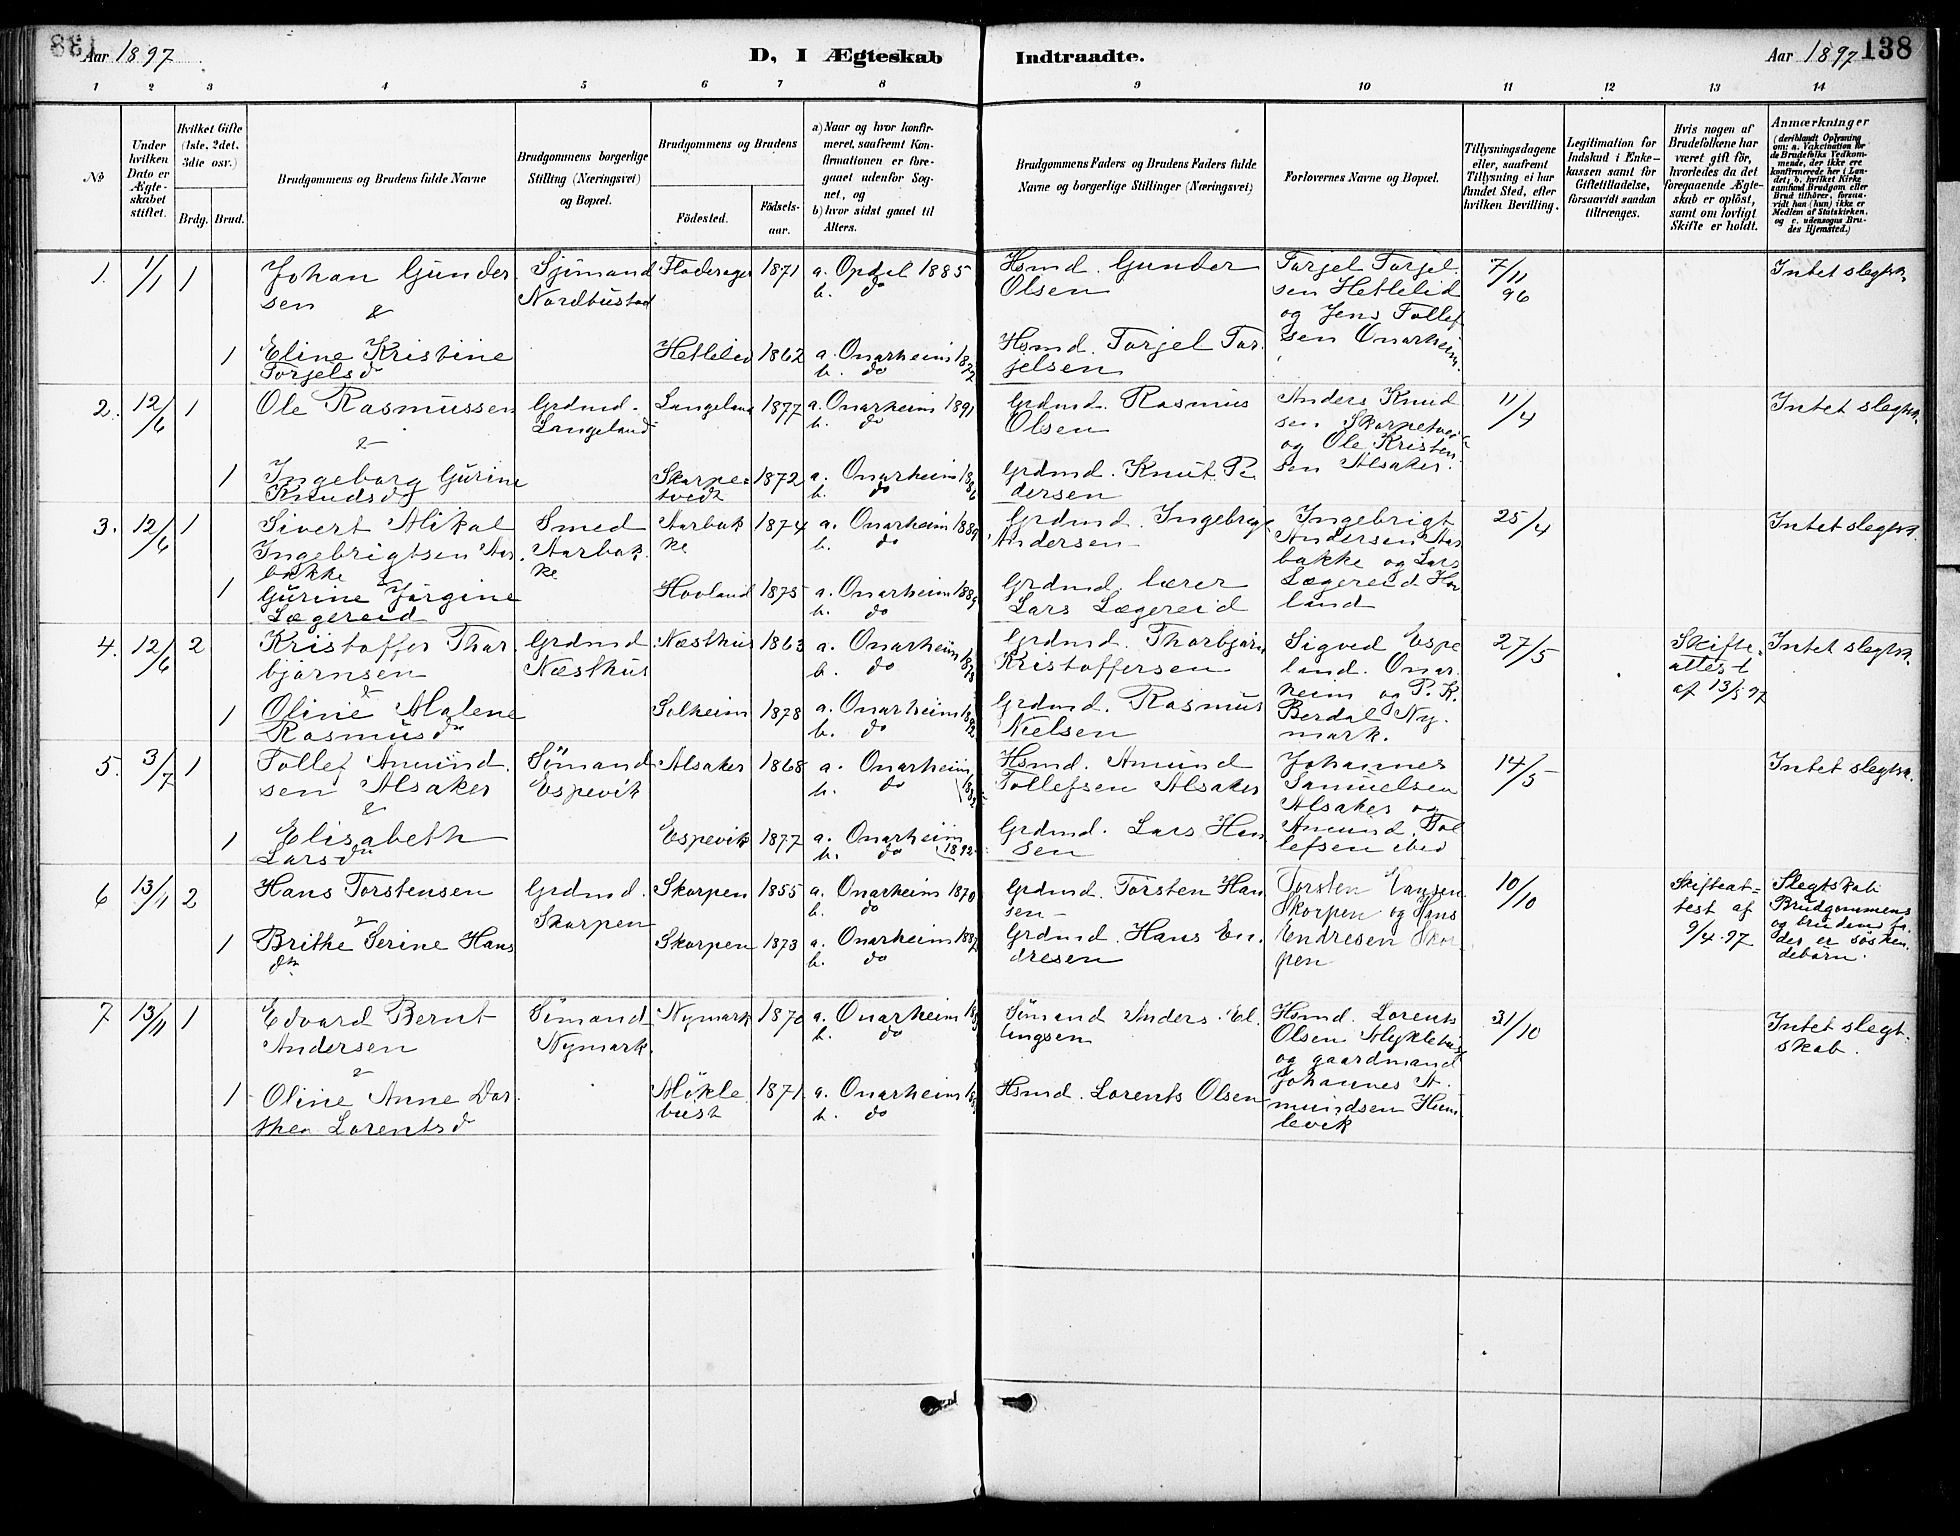 Aar 1897
D, I Ægteskab Indtraadte.
Aar 1897 138
1 2 3 4 5 6 7 8 9 10 11 12 13 14
No
Under hvilken Dato er Ægteskabet stiftet.
Hvilket Gifte (1ste, 2det, 3die osv.)
Brdg. Brud.
Brudgommens og Brudens fulde Navne
Brudgommens borgerlige Stilling (Næringsvei) og Bopæl.
Brudgommens og Brudens
Födested.
Födselsaar.
a) Naar og hvor konfirmeret, saafremt Konfirmationen er foregaaet udenfor Sognet, og
b) hvor sidst gaaet til Alters.
Brudgommens Faders og Brudens Faders fulde Navne og borgerlige Stillinger (Næringsvei)
Forlovernes Navne og Bopæl.
Tillysningsdagene eller, saafremt Tillysning ei har fundet Sted, efter hvilken Bevilling.
Legitimation for Indskud i Enkekassen samt for Giftetilladelse, forsaavidt saadan tiltrænges.
Hvis nogen af Brudefolkene har været gift för, hvorledes da det foregaaende Ægteskab er oplöst, samt om lovligt Skifte er holdt.
Anmærkninger
(deriblandt Oplysning om: a. Vakcination for de Brudefolks Vedkommende, der ikke ere konfirmerede her i Landet; b. hvilket Kirkesamfund Brudgom eller Brud tilhörer, forsaavidt han (hun) ikke er Medlem af Statskirken, og c. udensogns Brudes Hjemsted.)
1. 1/1 1 Johan Gundersen & Sjömand Nordhustad Floderager 1871 a. Opdal 1885 b. do
Hsmd. Gunder Olsen
Torjel Torjelsen Hetlelid og Jens Tollefsen Onarheim.
7/11 96
Intet slegtsk.
1 Eline Kristine Torjelsd Hetlelid 1862 a. Onarheim 1877 b. do
Hsmd. Torjel Torjelsen
2. 12/6 1 Ole Rasmussen & Grdmd. Langeland Langeland 1877 a. Onarheim 1891 b. do
Grdmd. Rasmus Olsen
Anders Knudsen Skorpetvei og Ole Kristensen Alsaker.
11/4
Intet slegtsk.
1 Ingeborg Gurine Knudsd Skorpetvedt 1872 a. Onarheim 1886 b. do
Grdmd. Knut Pedersen
3. 12/6 1 Sivert Mikal Ingebrigtsen Aarbakke & Smed Aarbakke Aarbakke 1874 a. Onarheim 1889 b. do
Grdmd. Ingebrigt Andersen
Ingebrigt Andersen Aarbakke og Lars Lægereid Hovland
25/4
Intet slegtsk.
1 Gurine Jörgine Lægereid Hovland 1875 a. Onarheim 1889 b. do
Grdmd. lærer Lars Lægereid
4. 12/6 2 Kristoffer Thorbjörnsen & Grdmd Næsthus Næsthus 1863 a. Onarheim 1878 b. do
Grdmd. Thorbjörn Kristoffersen
Sigved Espeland. Onarheim og P. K. Berdal Nymark.
27/5
Skifteattest af 13/5 97
Intet slegtsk.
1 Oline Malene Rasmusdr Solheim 1878 a. Onarheim 1892 b. do
Grdmd. Rasmus Nielsen
5. 3/7 1 Tollef Amundsen Alsaker & Sömand Espevik Alsaker 1868 a. Onarheim 1883 b. do
Hsmd. Amund Tollefsen Alsaker
Johannes Samuelsen Alsaker og Amund Tollefsen ibid
14/5
Intet slegtsk.
1 Elisabeth Larsdr Espevik 1877 a. Onarheim 1892 b. do
Grdmd. Lars Hansen
6 13/11 2 Hans Torstensen & Grdmd. Skorpen Skorpen 1855 a. Onarheim 1870 b. do
Grdmd. Torsten Hansen
Torsten Hansen Skorpen og Hans Endresen Skorpen
10/10
Skifteattest af 9/4 97
Slegtskab: Brudgommens og brudens fader er söskendebörn.
1 Brithe Serine Hansdtr Skorpen 1873 a. Onarheim 1887 b. do
Grdmd. Hans Endresen
7 13/11 1 Edvard Bernt Andersen & Sömand Nymark. Nymark 1870 a. Onarheim b. do
Sömand Anders Ellingsen
Hsmd. Lorents Olsen Myklebust og gaardmand Johannes Amundsen Humlevik
31/10
Intet slegtskab.
1 Oline Anne Dorthea Lorentsd Möklebust 1871 a. Onarheim b. do
Hsmd. Lorents Olsen